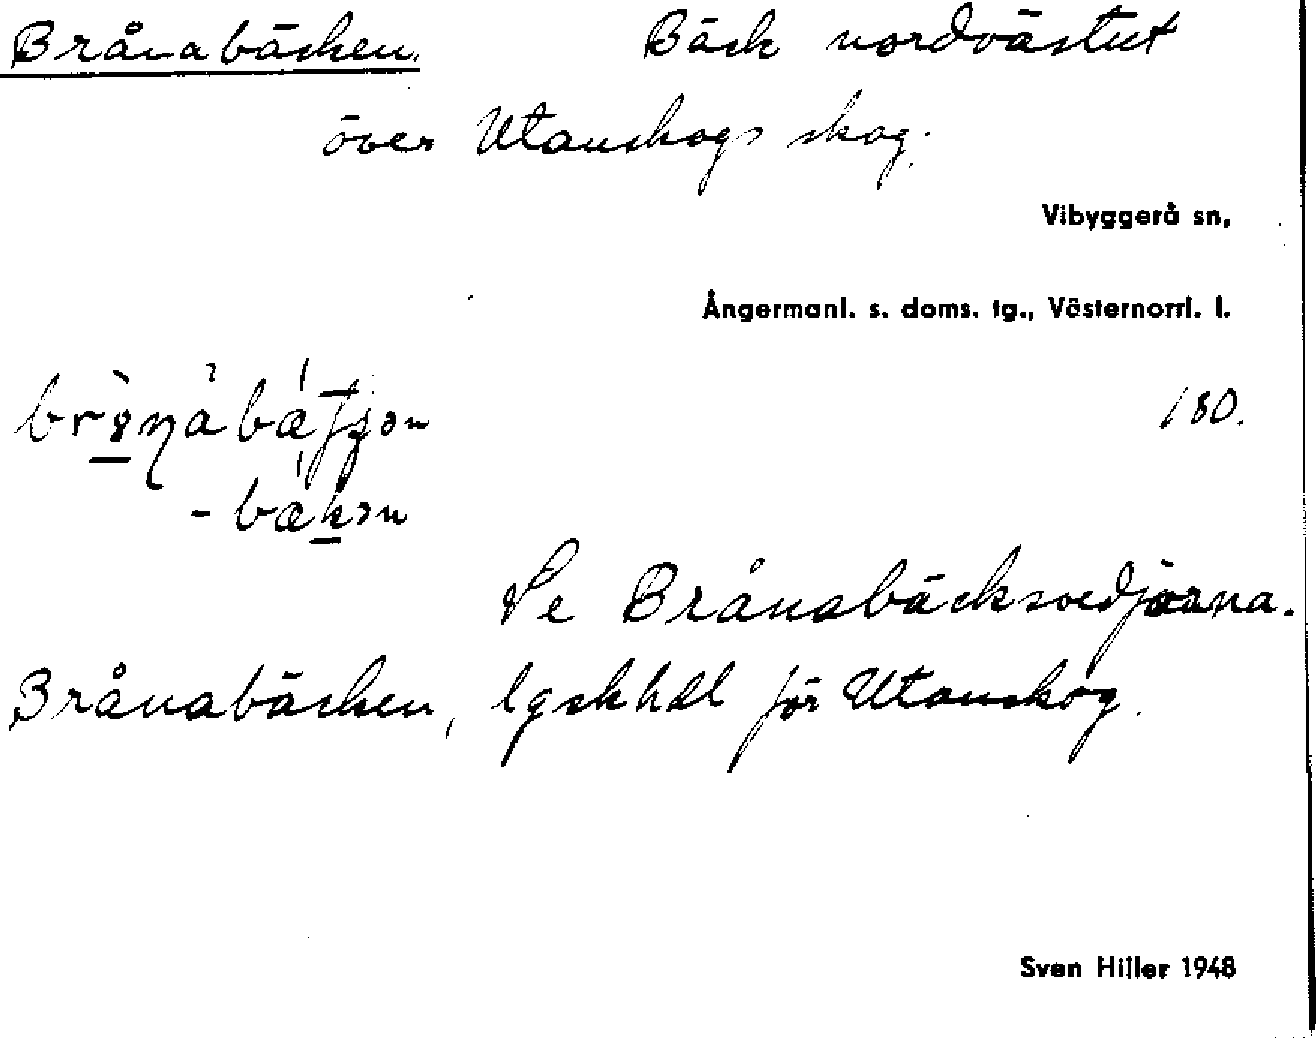 Brånabäcken. Bäck nordvästut
över Utanskogs skog.
Vibyggerå sn,
Ångermanl. s. doms. tg., Västernorrl. l.
180.
Se Brånabäckssvedjorna.
Brånabäcken, lgskhdl för Utanskog.
Sven Hiller 1948